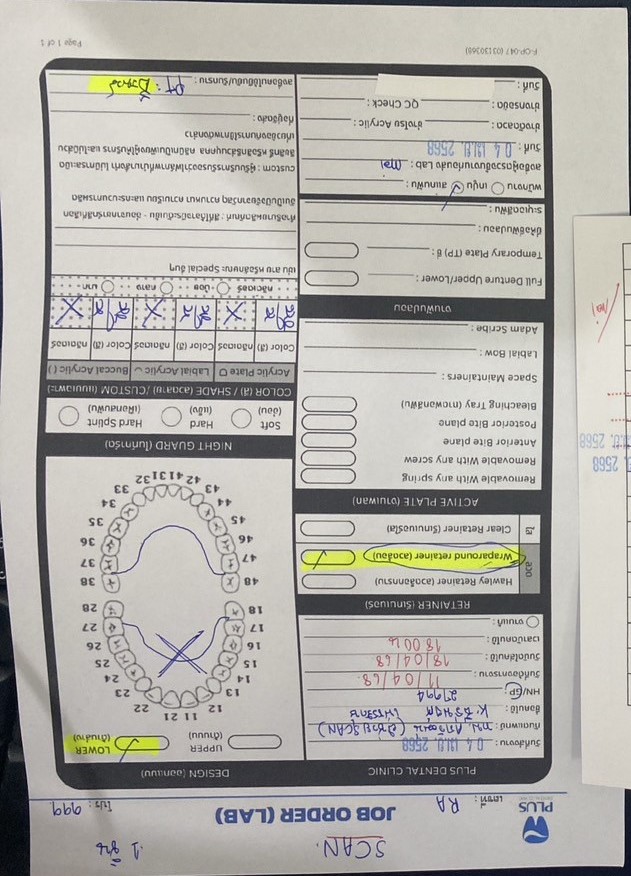 SCAN.
1 ชิ้น
PLUS
DENTAL CLINIC
เลขที่ : RA
JOB ORDER (LAB)
โปร : 999
PLUS DENTAL CLINIC
วันที่ส่งงาน : 04 เม.ย. 2568
ทันตแพทย์ : ทพ. (ผู้ช่วย SCAN)
ชื่อคนไข้ : K.
HN/GP : 27994
วันที่ต้องการงาน : 11/04/68
วันนัดใส่คนไข้ : 18/04/68
เวลานัดคนไข้ : 18.00 น
งานแก้ :
RETAINER (รีเทนเนอร์)
ลวด
Hawley Retainer (ลวดล็อกกราม)
Wraparound retainer (ลวดล้อม)
ใส
Clear Retainer (รีเทนเนอร์ใส)
ACTIVE PLATE (งานเพลท)
Removable With any spring
Removable With any screw
Anterior Bite plane
Posterior Bite plane
Bleaching Tray (ถาดฟอกสีฟัน)
Space Maintainers :
Labial Bow :
Adam Scribe :
งานฟันปลอม
Full Denture Upper/Lower :
Temporary Plate (TP) ซี่ :
ยี่ห้อซี่ฟันปลอม :
ระบุเฉดสีฟัน :
พนักงาน เทปูน สแกนฟัน :
ลงชื่อผู้ตรวจชิ้นงานก่อนส่ง Lab : mai
วันที่ : 04 เม.ย. 2568
ช่างดัดลวด : ช่างโรย Acrylic :
ช่างกรอขัด : QC Check :
วันที่ :
DESIGN (ออกแบบ)
UPPER
(ด้านบน)
LOWER
(ด้านล่าง)
11 21
12 22
13 23
14 24
15 25
16 26
17 27
18 28
48 38
47 37
46 36
45 35
44 34
43 33
42 41 31 32
NIGHT GUARD (ไนท์การ์ด)
Soft
(อ่อน)
Hard
(แข็ง)
Hard Splint
(เฝือกสบฟัน)
COLOR (สี) / SHADE (ลวดลาย) /CUSTOM (แบบเฉพาะ)
Acrylic Plate Labial Acrylic Buccal Acrylic
Color (สี) กลิตเตอร์ Color (สี) กลิตเตอร์ Color (สี) กลิตเตอร์
สีใส X สีใส X สีใส X
กลิตเตอร์ น้อย กลาง มาก
เช่น ลาย หรือลักษณะ Special อื่นๆ
คำอธิบายผลิตภัณฑ์ : สีที่ได้อาจมีระดับเข้ม - อ่อนจากชาร์ทสีที่เลือก
อันเป็นปัจจัยจากวัสดุ ความหนา ความเรียบ และกระบวนการผลิต
custom : ผู้รับบริการรับรองว่าไฟล์ภาพที่นำมาสั่งทำ ไม่มีการละเมิด
ลิขสิทธิ์ หรือสิทธิส่วนบุคคล คลินิกเป็นเพียงผู้ให้บริการ และไม่มีส่วน
เกี่ยวข้องกับการใช้ภาพดังกล่าว
ที่อยู่จัดส่ง :
ลงชื่อคนไข้ยืนยัน/รับทราบ : PT :
F-OP-047 (03130368)
Page 1 of 1
2568
เม.ย. 2568
mai